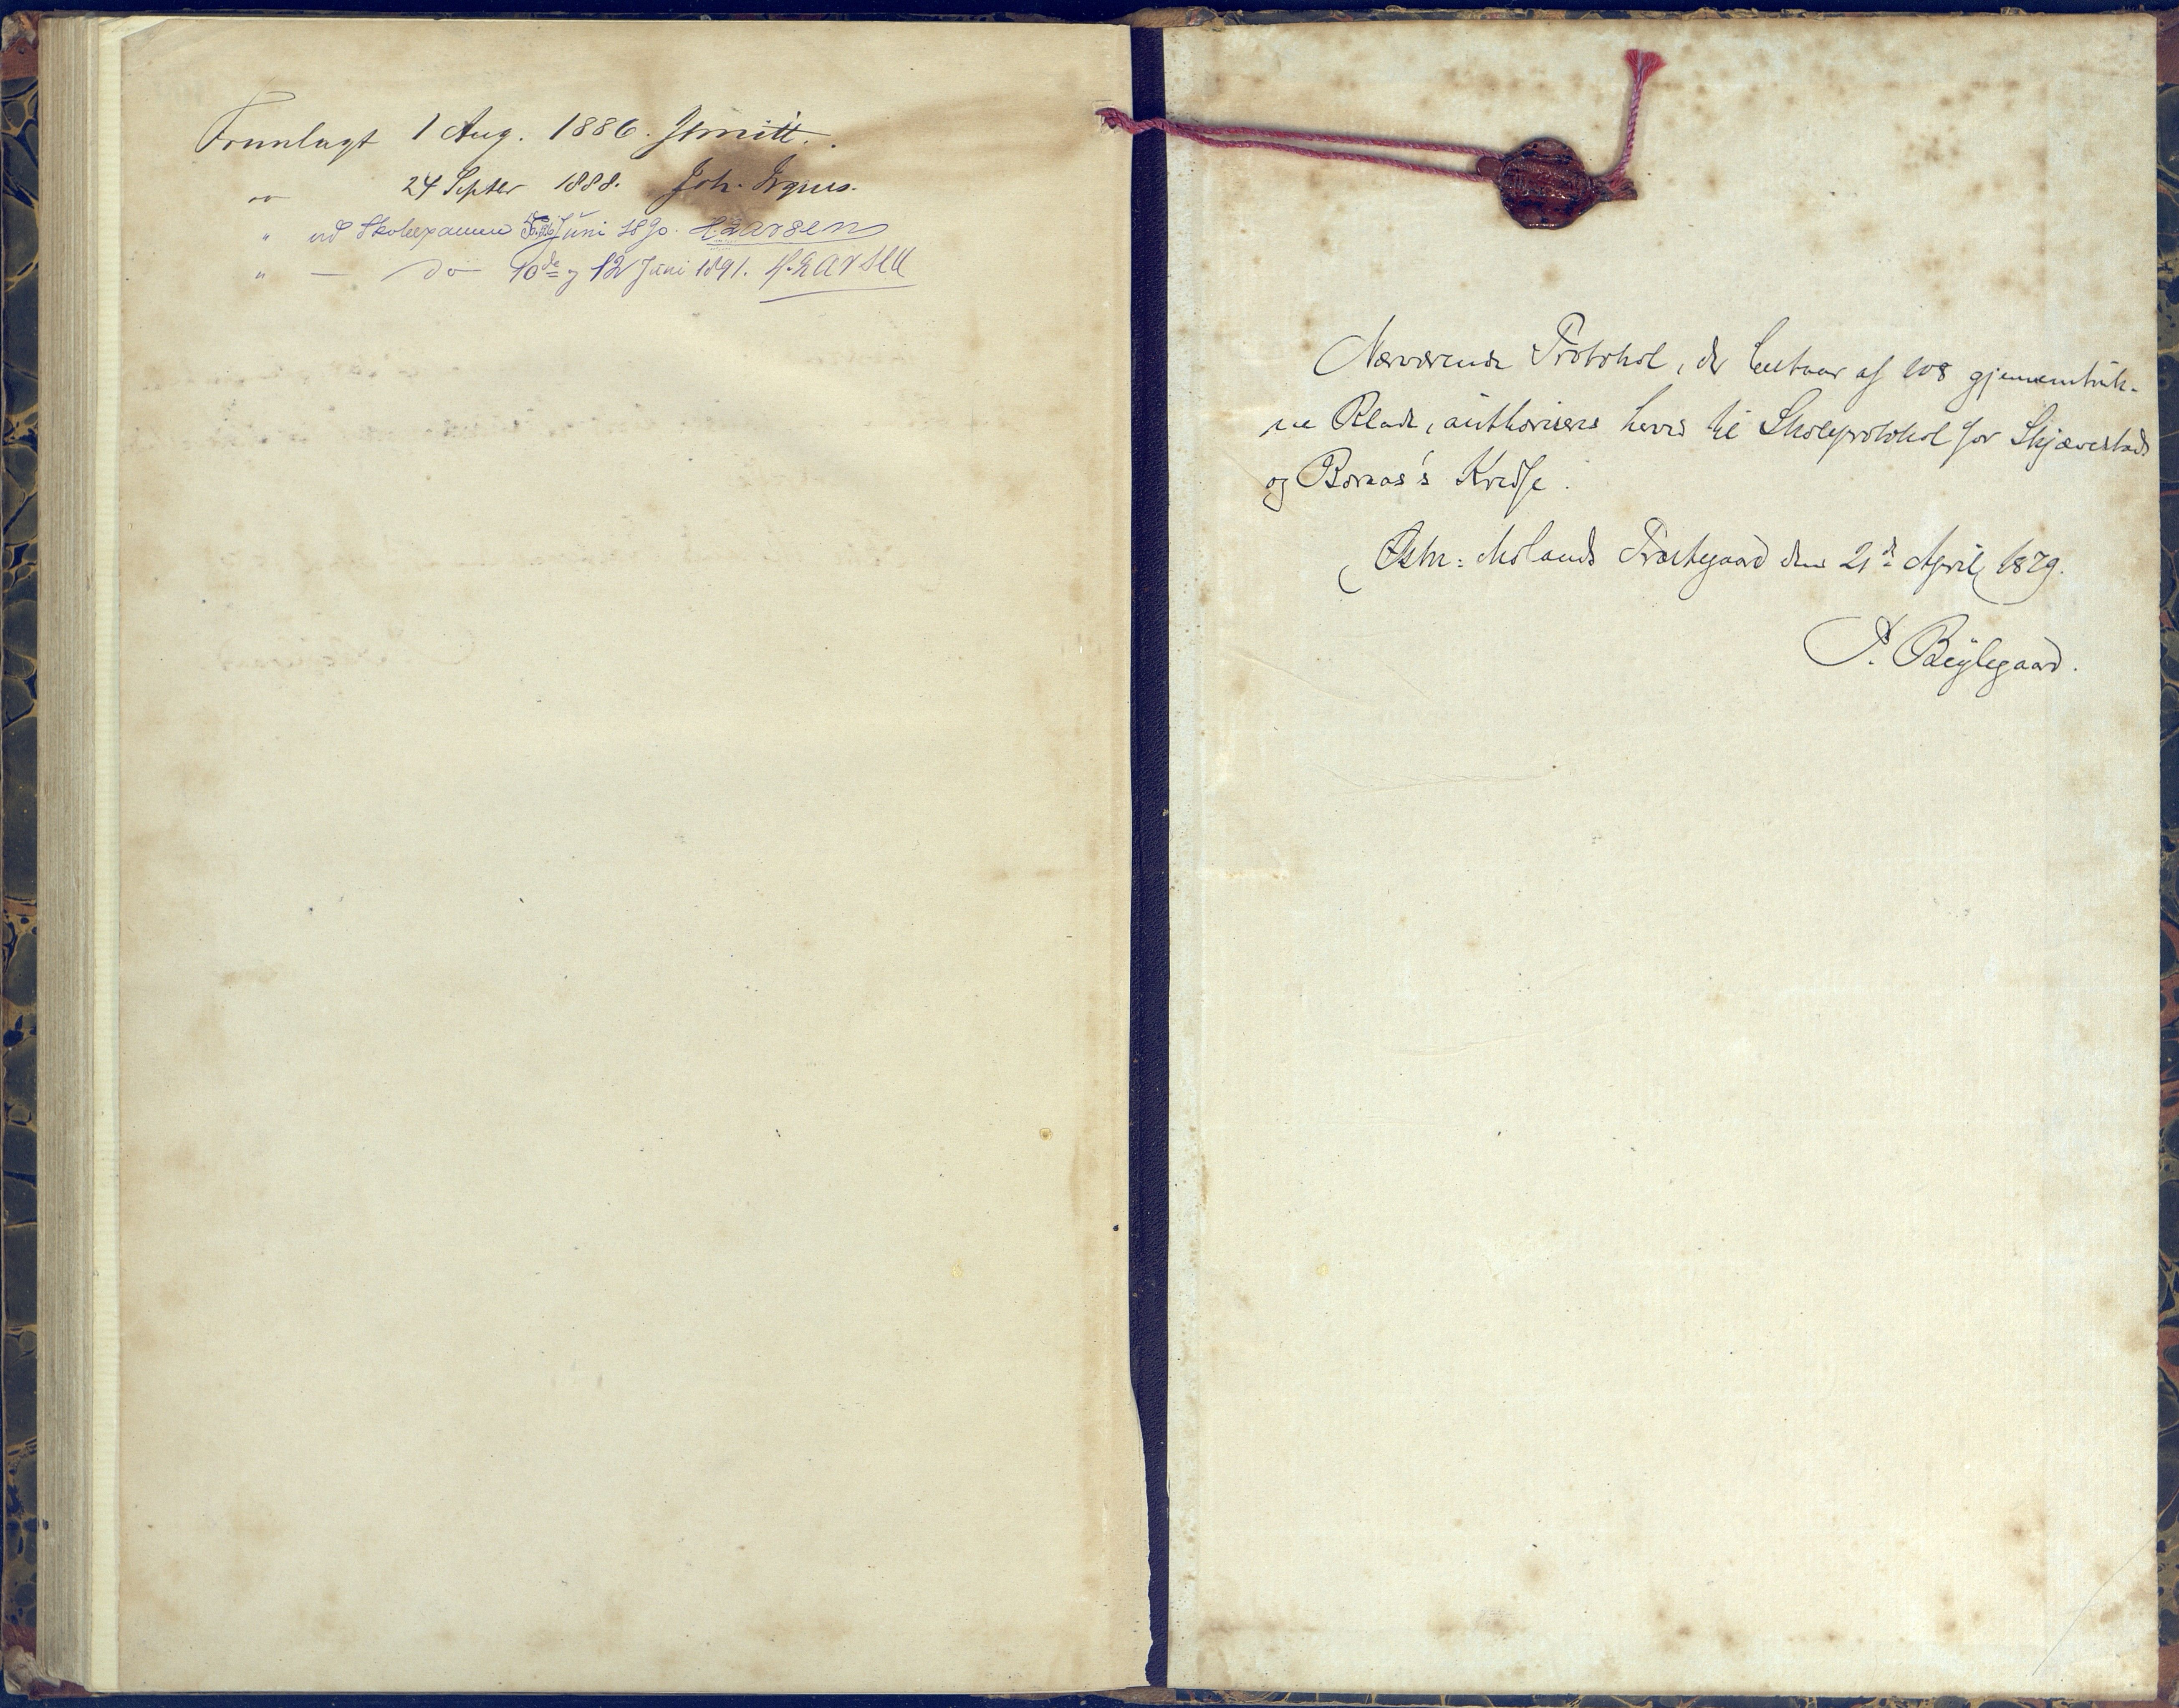 Fremlagt 1 Aug. 1886. JSmitt.
" 24 Septer 1888. Joh.
" ved Skoleexamen Juni 1890. H. Larsen
" — Do 10de og 12 Juni 1891. H. Larsen
Nærværende Protokol, der bestaar af 108 gjennemtruk-
ne Blade, authoriseres herved til Skoleprotokol for Skjævestads
og Bornas's Kredse.
Østre: Molands Præstegaard den 21de April 1879.
P. Bøylegaard.